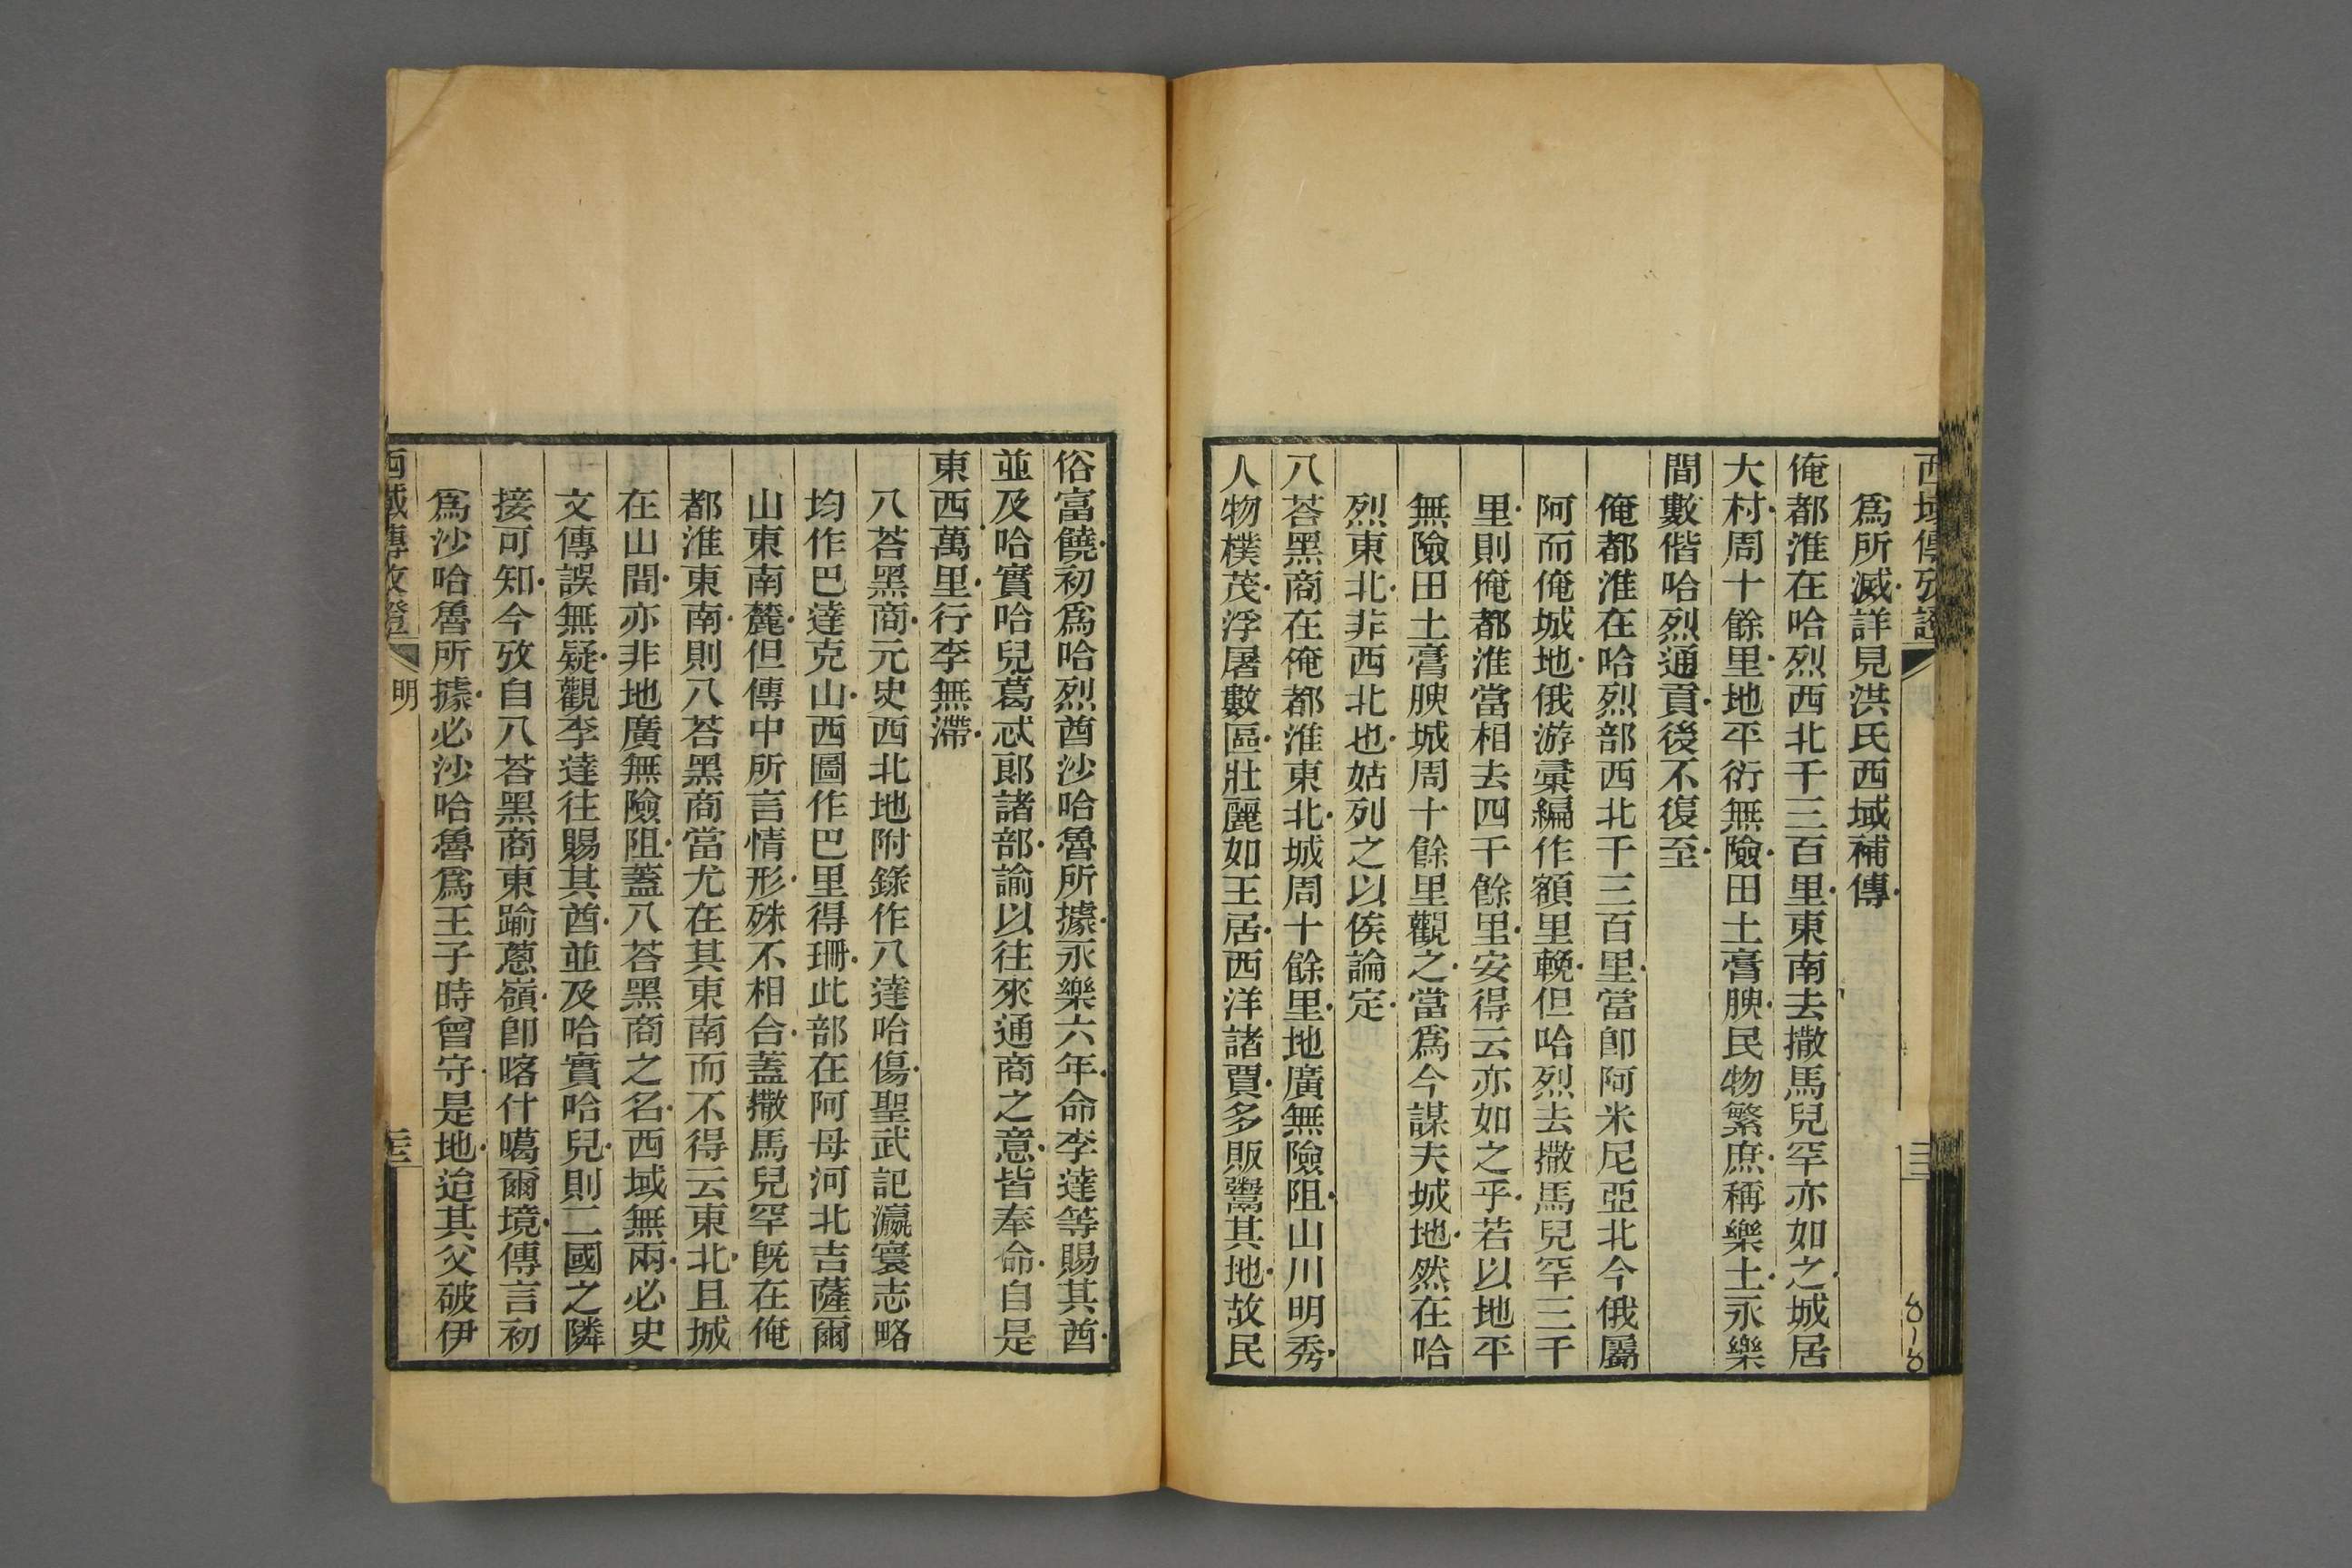 西域傳攷證
爲所滅詳見洪氏西域補傳
俺都淮在哈烈西北千三百里東南去撒馬兒罕亦如之城居
大村周十餘里地平衍無險田土膏腴民物繁庶稱樂土永樂
間數偕哈烈通貢後不復至
俺都淮在哈烈部西北千三百里當卽阿米尼亞北今俄屬
阿而俺城地俄游彙編作額里輓但哈烈去撒馬兒罕三千
里則俺都淮當相去四千餘里安得云亦如之乎若以地平
無險田土膏腴城周十餘里觀之當爲今謀夫城地然在哈
烈東北非西北也姑列之以俟論定
八荅黑商在俺都淮東北城周十餘里地廣無險阻山川明秀
人物樸茂浮屠數區壯麗如王居西洋諸賈多販鬻其地故民
俗富饒初爲哈烈酋沙哈魯所據永樂六年命李達等賜其酋
並及哈實哈兒葛忒郞諸部諭以往來通商之意皆奉命自是
東西萬里行李無滯
八荅黑商元史西北地附錄作八達哈傷聖武記瀛寰志略
均作巴達克山西圖作巴里得珊此部在阿母河北吉薩爾
山東南麓但傳中所言情形殊不相合蓋撒馬兒罕旣在俺
都淮東南則八荅黑商當尤在其東南而不得云東北且城
在山間亦非地廣無險阻蓋八荅黑商之名西域無兩必史
文傳誤無疑觀李達往賜其酋並及哈實哈兒則二國之隣
接可知今攷自八荅黑商東踰蔥嶺卽喀什噶爾境傳言初
爲沙哈魯所據必沙哈魯爲王子時曾守是地迨其父破伊
西域傳攷證
明